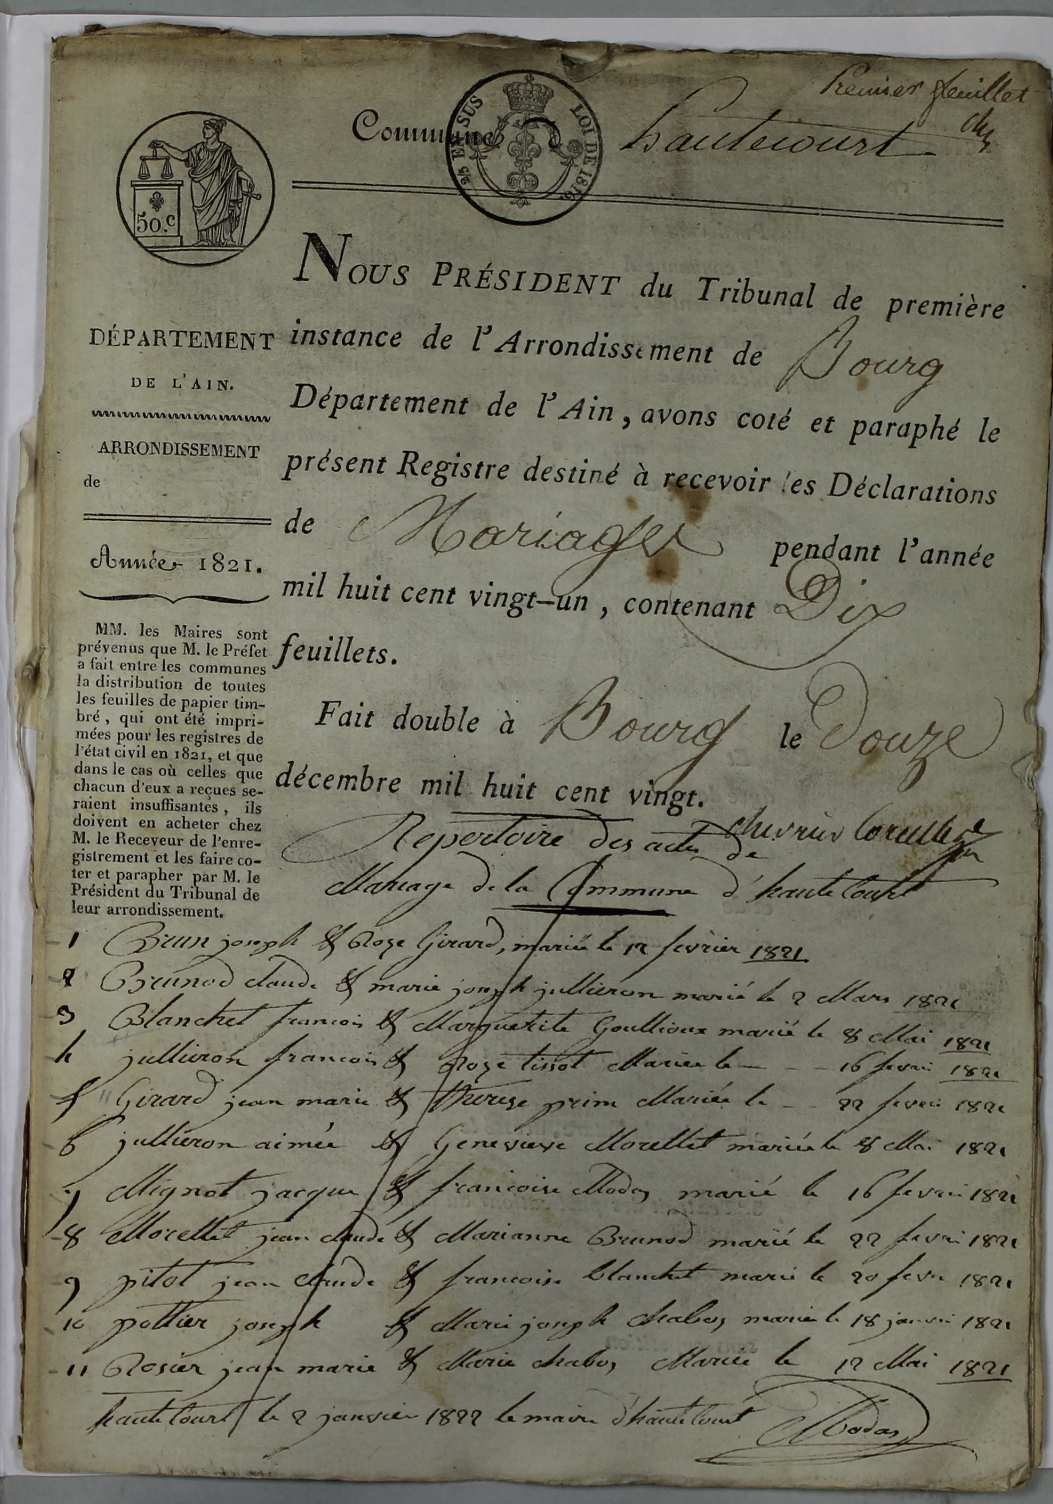 Premier feuillet
Commune hautecourt
25 EN SUS LOI DE 1816
50.c
DÉPARTEMENT
DE L'AIN.
ARRONDISSEMENT
de
Année 1821.
MM. les Maires sont
prévenus que M. le Préfet
a fait entre les communes
la distribution de toutes
les feuilles de papier tim-
bré, qui ont été impri-
mées pour les registres de
l'état civil en 1821, et que
dans le cas où celles que
chacun d'eux a reçues se-
raient insuffisantes, ils
doivent en acheter chez
M. le Receveur de l'enre-
gistrement et les faire co-
ter et parapher par M. le
Président du Tribunal de
leur arrondissement.
NOUS PRÉSIDENT du Tribunal de première
instance de l'Arrondissement de Bourg
Département de l'Ain, avons coté et paraphé le
présent Registre destiné à recevoir les Déclarations
de Mariages pendant l'année
mil huit cent vingt-un, contenant Dix
feuillets.
Fait double à Bourg le Douze
décembre mil huit cent vingt.
Repertoire des actes de
Mariage de la Commune d'hautecourt
1 Brun joseph & Roze Girard, mariée le 12 fevrier 1821
2 Brunod claude & marie joseph jullieron marié le 2 Mars 1821
3 Blanchet francois & Marguerite Goullioux marié le 8 Mai 1821
4 jullieron francois & Roze tissot Mariée le 16 fevri 1821
5 Girard jean marie & therese prim Mariée le 22 fevri 1821
6 jullieron aimée & Genevieve Morellet mariée le 8 Mai 1821
7 Mignot jacque & francoise Modas marié le 16 fevri 1821
8 Morellet jean claude & Marianne Brunod marié le 22 fevri 1821
9 pitot jean claude & francoise blanchet marié le 20 fevri 1821
10 pottier joseph & Marie joseph chabos marié le 18 janvi 1821
11 Rosier jean marie & Marie chabos Mariée le 12 Mai 1821
hautecourt le 2 janvier 1822 le maire d'hautecourt Modas